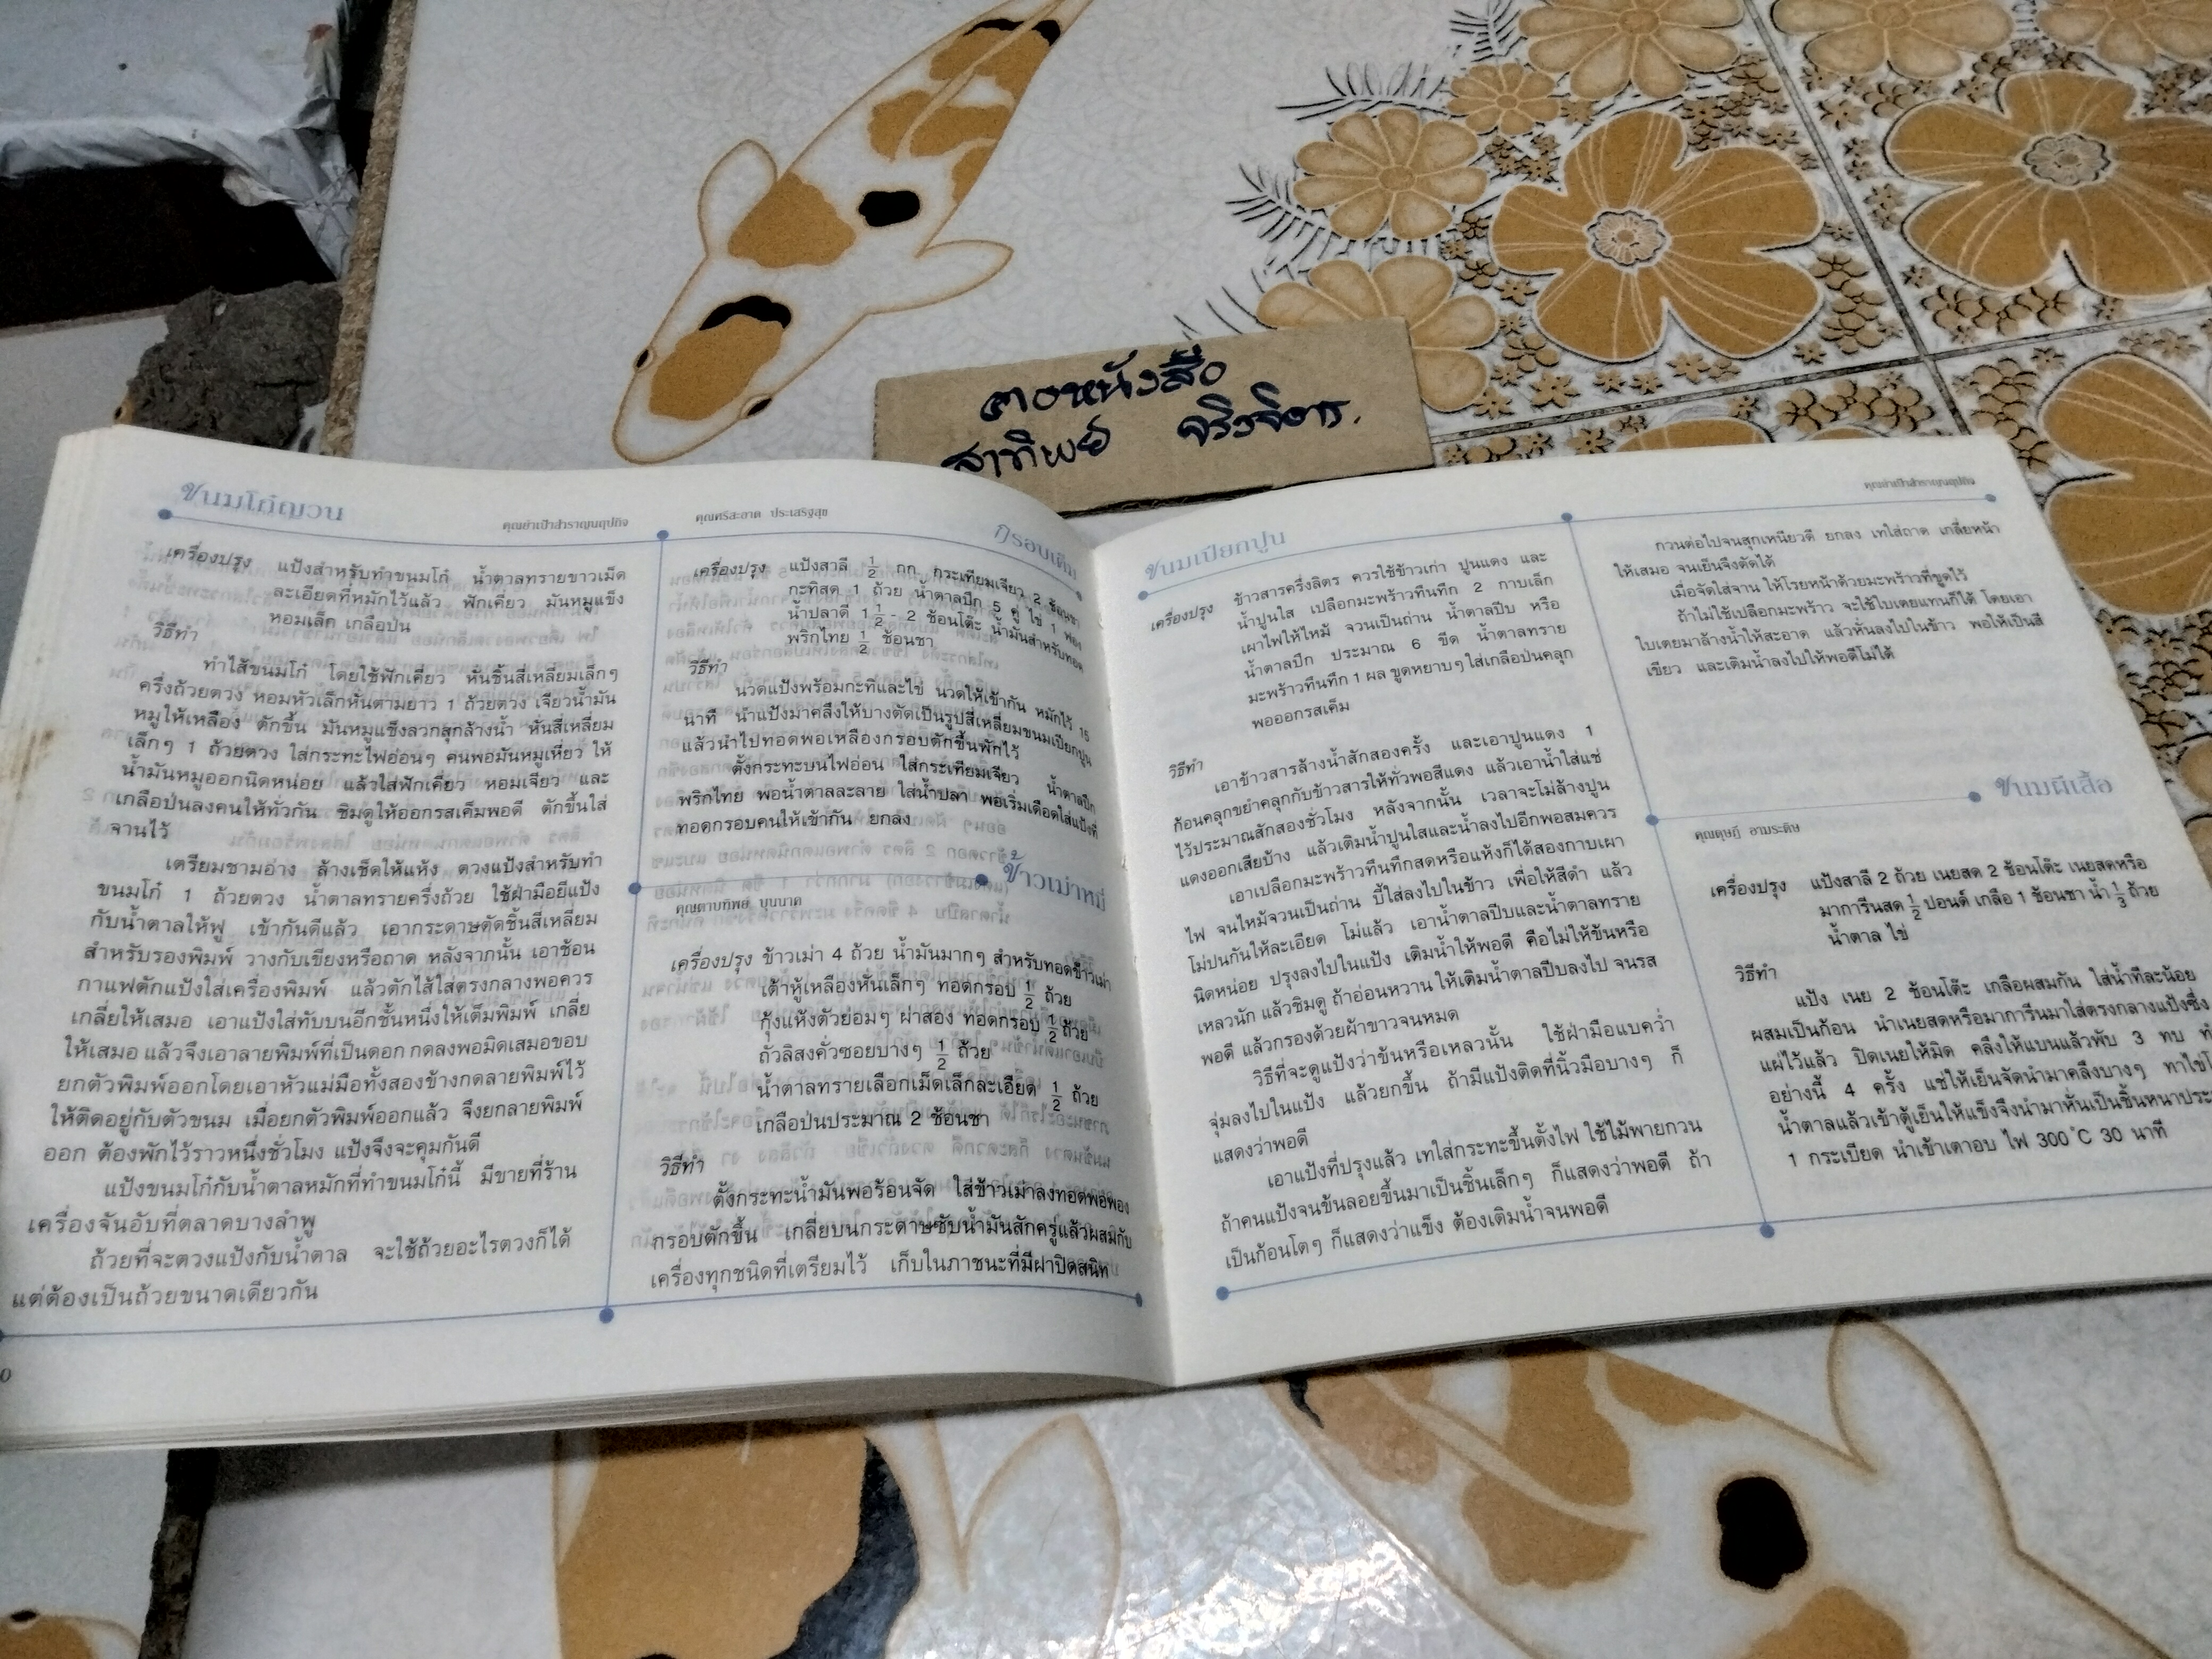 สาทิพย์
ขนมโก๋ญวน
คุณย่าเป้าสำราญนฤปกิจ
เครื่องปรุง แป้งสำหรับทำขนมโก๋ น้ำตาลทรายขาวเม็ด
ละเอียดที่หมักไว้แล้ว ฟักเคี่ยว มันหมูแข็ง
หอมเล็ก เกลือป่น
วิธีทำ
ทำไส้ขนมโก๋ โดยใช้ฟักเคี่ยว หั่นชิ้นสี่เหลี่ยมเล็กๆ
ครึ่งถ้วยตวง หอมหัวเล็กหั่นตามยาว 1 ถ้วยตวง เจียวน้ำมัน
หมูให้เหลือง ตักขึ้น มันหมูแข็งลวกสุกล้างน้ำ หั่นสี่เหลี่ยม
เล็กๆ 1 ถ้วยตวง ใส่กระทะไฟอ่อนๆ คนพอมันหมูเหี่ยว ให้
น้ำมันหมูออกนิดหน่อย แล้วใส่ฟักเคี่ยว หอมเจียว และ
เกลือป่นลงคนให้ทั่วกัน ชิมดูให้ออกรสเค็มพอดี ตักขึ้นใส่
จานไว้
เตรียมชามอ่าง ล้างเช็ดให้แห้ง ตวงแป้งสำหรับทำ
ขนมโก๋ 1 ถ้วยตวง น้ำตาลทรายครึ่งถ้วย ใช้ฝ่ามือยีแป้ง
กับน้ำตาลให้ฟู เข้ากันดีแล้ว เอากระดาษตัดชิ้นสี่เหลี่ยม
สำหรับรองพิมพ์ วางกับเขียงหรือถาด หลังจากนั้น เอาช้อน
กาแฟตักแป้งใส่เครื่องพิมพ์ แล้วตักไส้ใส่ตรงกลางพอควร
เกลี่ยให้เสมอ เอาแป้งใส่ทับบนอีกชั้นหนึ่งให้เต็มพิมพ์ เกลี่ย
ให้เสมอ แล้วจึงเอาลายพิมพ์ที่เป็นดอก กดลงพอมิดเสมอขอบ
ยกตัวพิมพ์ออกโดยเอาหัวแม่มือทั้งสองข้างกดลายพิมพ์ไว้
ให้ติดอยู่กับตัวขนม เมื่อยกตัวพิมพ์ออกแล้ว จึงยกลายพิมพ์
ออก ต้องพักไว้ราวหนึ่งชั่วโมง แป้งจึงจะคุมกันดี
แป้งขนมโก๋กับน้ำตาลหมักที่ทำขนมโก๋นี้ มีขายที่ร้าน
เครื่องจันอับที่ตลาดบางลำพู
ถ้วยที่จะตวงแป้งกับน้ำตาล จะใช้ถ้วยอะไรตวงก็ได้
แต่ต้องเป็นถ้วยขนาดเดียวกัน
0
คุณศรีสะอาด ประเสริฐสุข
กรอบเค็ม
เครื่องปรุง แป้งสาลี 1/2 กก. กระเทียมเจียว 2 ช้อนชา
กะทิสด 1 ถ้วย น้ำตาลปึก 5 คู่ ไข่ 1 ฟอง
น้ำปลาดี 1 1/2 - 2 ช้อนโต๊ะ น้ำมันสำหรับทอด
พริกไทย 1/2 ช้อนชา
วิธีทำ
นวดแป้งพร้อมกะทิและไข่ นวดให้เข้ากัน หมักไว้ 15
นาที นำแป้งมาคลึงให้บางตัดเป็นรูปสี่เหลี่ยมขนมเปียกปูน
แล้วนำไปทอดพอเหลืองกรอบตักขึ้นพักไว้
ตั้งกระทะบนไฟอ่อน ใส่กระเทียมเจียว น้ำตาลปึก
พริกไทย พอน้ำตาลละลาย ใส่น้ำปลา พอเริ่มเดือดใส่แป้งที่
ทอดกรอบคนให้เข้ากัน ยกลง
ข้าวเม่าหมี่
คุณดาบทิพย์ บุนนาค
เครื่องปรุง ข้าวเม่า 4 ถ้วย น้ำมันมากๆ สำหรับทอดข้าวเม่า
เต้าหู้เหลืองหั่นเล็กๆ ทอดกรอบ 1/2 ถ้วย
กุ้งแห้งตัวย่อมๆ ผ่าสอง ทอดกรอบ 1/2 ถ้วย
ถั่วลิสงคั่วซอยบางๆ 1/2 ถ้วย
น้ำตาลทรายเลือกเม็ดเล็กละเอียด 1/2 ถ้วย
เกลือป่นประมาณ 2 ช้อนชา
วิธีทำ
ตั้งกระทะน้ำมันพอร้อนจัด ใส่ข้าวเม่าลงทอดพอพอง
กรอบตักขึ้น เกลี่ยบนกระดาษซับน้ำมันสักครู่แล้วผสมกับ
เครื่องทุกชนิดที่เตรียมไว้ เก็บในภาชนะที่มีฝาปิดสนิท
ขนมเปียกปูน
คุณย่าเป้าสำราญนฤปกิจ
เครื่องปรุง ข้าวสารครึ่งลิตร ควรใช้ข้าวเก่า ปูนแดง และ
น้ำปูนใส เปลือกมะพร้าวทึนทึก 2 กาบเล็ก
เผาไฟให้ไหม้ จวนเป็นถ่าน น้ำตาลปีบ หรือ
น้ำตาลปึก ประมาณ 6 ขีด น้ำตาลทราย
มะพร้าวทึนทึก 1 ผล ขูดหยาบๆ ใส่เกลือป่นคลุก
พอออกรสเค็ม
วิธีทำ
เอาข้าวสารล้างน้ำสักสองครั้ง และเอาปูนแดง 1
ก้อนคลุกขยำคลุกกับข้าวสารให้ทั่วพอสีแดง แล้วเอาน้ำใส่แช่
ไว้ประมาณสักสองชั่วโมง หลังจากนั้น เวลาจะโม่ล้างปูน
แดงออกเสียบ้าง แล้วเติมน้ำปูนใสและน้ำลงไปอีกพอสมควร
เอาเปลือกมะพร้าวทึนทึกสดหรือแห้งก็ได้สองกาบเผา
ไฟ จนไหม้จวนเป็นถ่าน บี้ใส่ลงไปในข้าว เพื่อให้สีดำ แล้ว
โม่ปนกันให้ละเอียด โม่แล้ว เอาน้ำตาลปีบและน้ำตาลทราย
นิดหน่อย ปรุงลงไปในแป้ง เติมน้ำให้พอดี คือไม่ให้ข้นหรือ
เหลวนัก แล้วชิมดู ถ้าอ่อนหวาน ให้เติมน้ำตาลปีบลงไป จนรส
พอดี แล้วกรองด้วยผ้าขาวจนหมด
วิธีที่จะดูแป้งว่าข้นหรือเหลวนั้น ใช้ฝ่ามือแบคว่ำ
จุ่มลงไปในแป้ง แล้วยกขึ้น ถ้ามีแป้งติดที่นิ้วมือบางๆ ก็
แสดงว่าพอดี
เอาแป้งที่ปรุงแล้ว เทใส่กระทะขึ้นตั้งไฟ ใช้ไม้พายกวน
ถ้าคนแป้งจนข้นลอยขึ้นมาเป็นชิ้นเล็กๆ ก็แสดงว่าพอดี ถ้า
เป็นก้อนโตๆ ก็แสดงว่าแข็ง ต้องเติมน้ำจนพอดี
กวนต่อไปจนสุกเหนียวดี ยกลง เทใส่ถาด เกลี่ยหน้า
ให้เสมอ จนเย็นจึงตัดได้
เมื่อจัดใส่จาน ให้โรยหน้าด้วยมะพร้าวที่ขูดไว้
ถ้าไม่ใช้เปลือกมะพร้าว จะใช้ใบเตยแทนก็ได้ โดยเอา
ใบเตยมาล้างน้ำให้สะอาด แล้วหั่นลงไปในข้าว พอให้เป็นสี
เขียว และเติมน้ำลงไปให้พอดีโม่ได้
ขนมผีเสื้อ
คุณดุษฎี อามระดิษ
เครื่องปรุง แป้งสาลี 2 ถ้วย เนยสด 2 ช้อนโต๊ะ เนยสดหรือ
มาการีนสด 1/2 ปอนด์ เกลือ 1 ช้อนชา น้ำ 1/3 ถ้วย
น้ำตาล ไข่
วิธีทำ
แป้ง เนย 2 ช้อนโต๊ะ เกลือผสมกัน ใส่น้ำทีละน้อย
ผสมเป็นก้อน นำเนยสดหรือมาการีนมาใส่ตรงกลางแป้งซึ่ง
แผ่ไว้แล้ว ปิดเนยให้มิด คลึงให้แบนแล้วพับ 3 ทบ
อย่างนี้ 4 ครั้ง แช่ให้เย็นจัดนำมาคลึงบางๆ ทาไข่
น้ำตาลแล้วเข้าตู้เย็นให้แข็งจึงนำมาหั่นเป็นชิ้นหนา
1 กระเบียด นำเข้าเตาอบ ไฟ 300°C 30 นาที